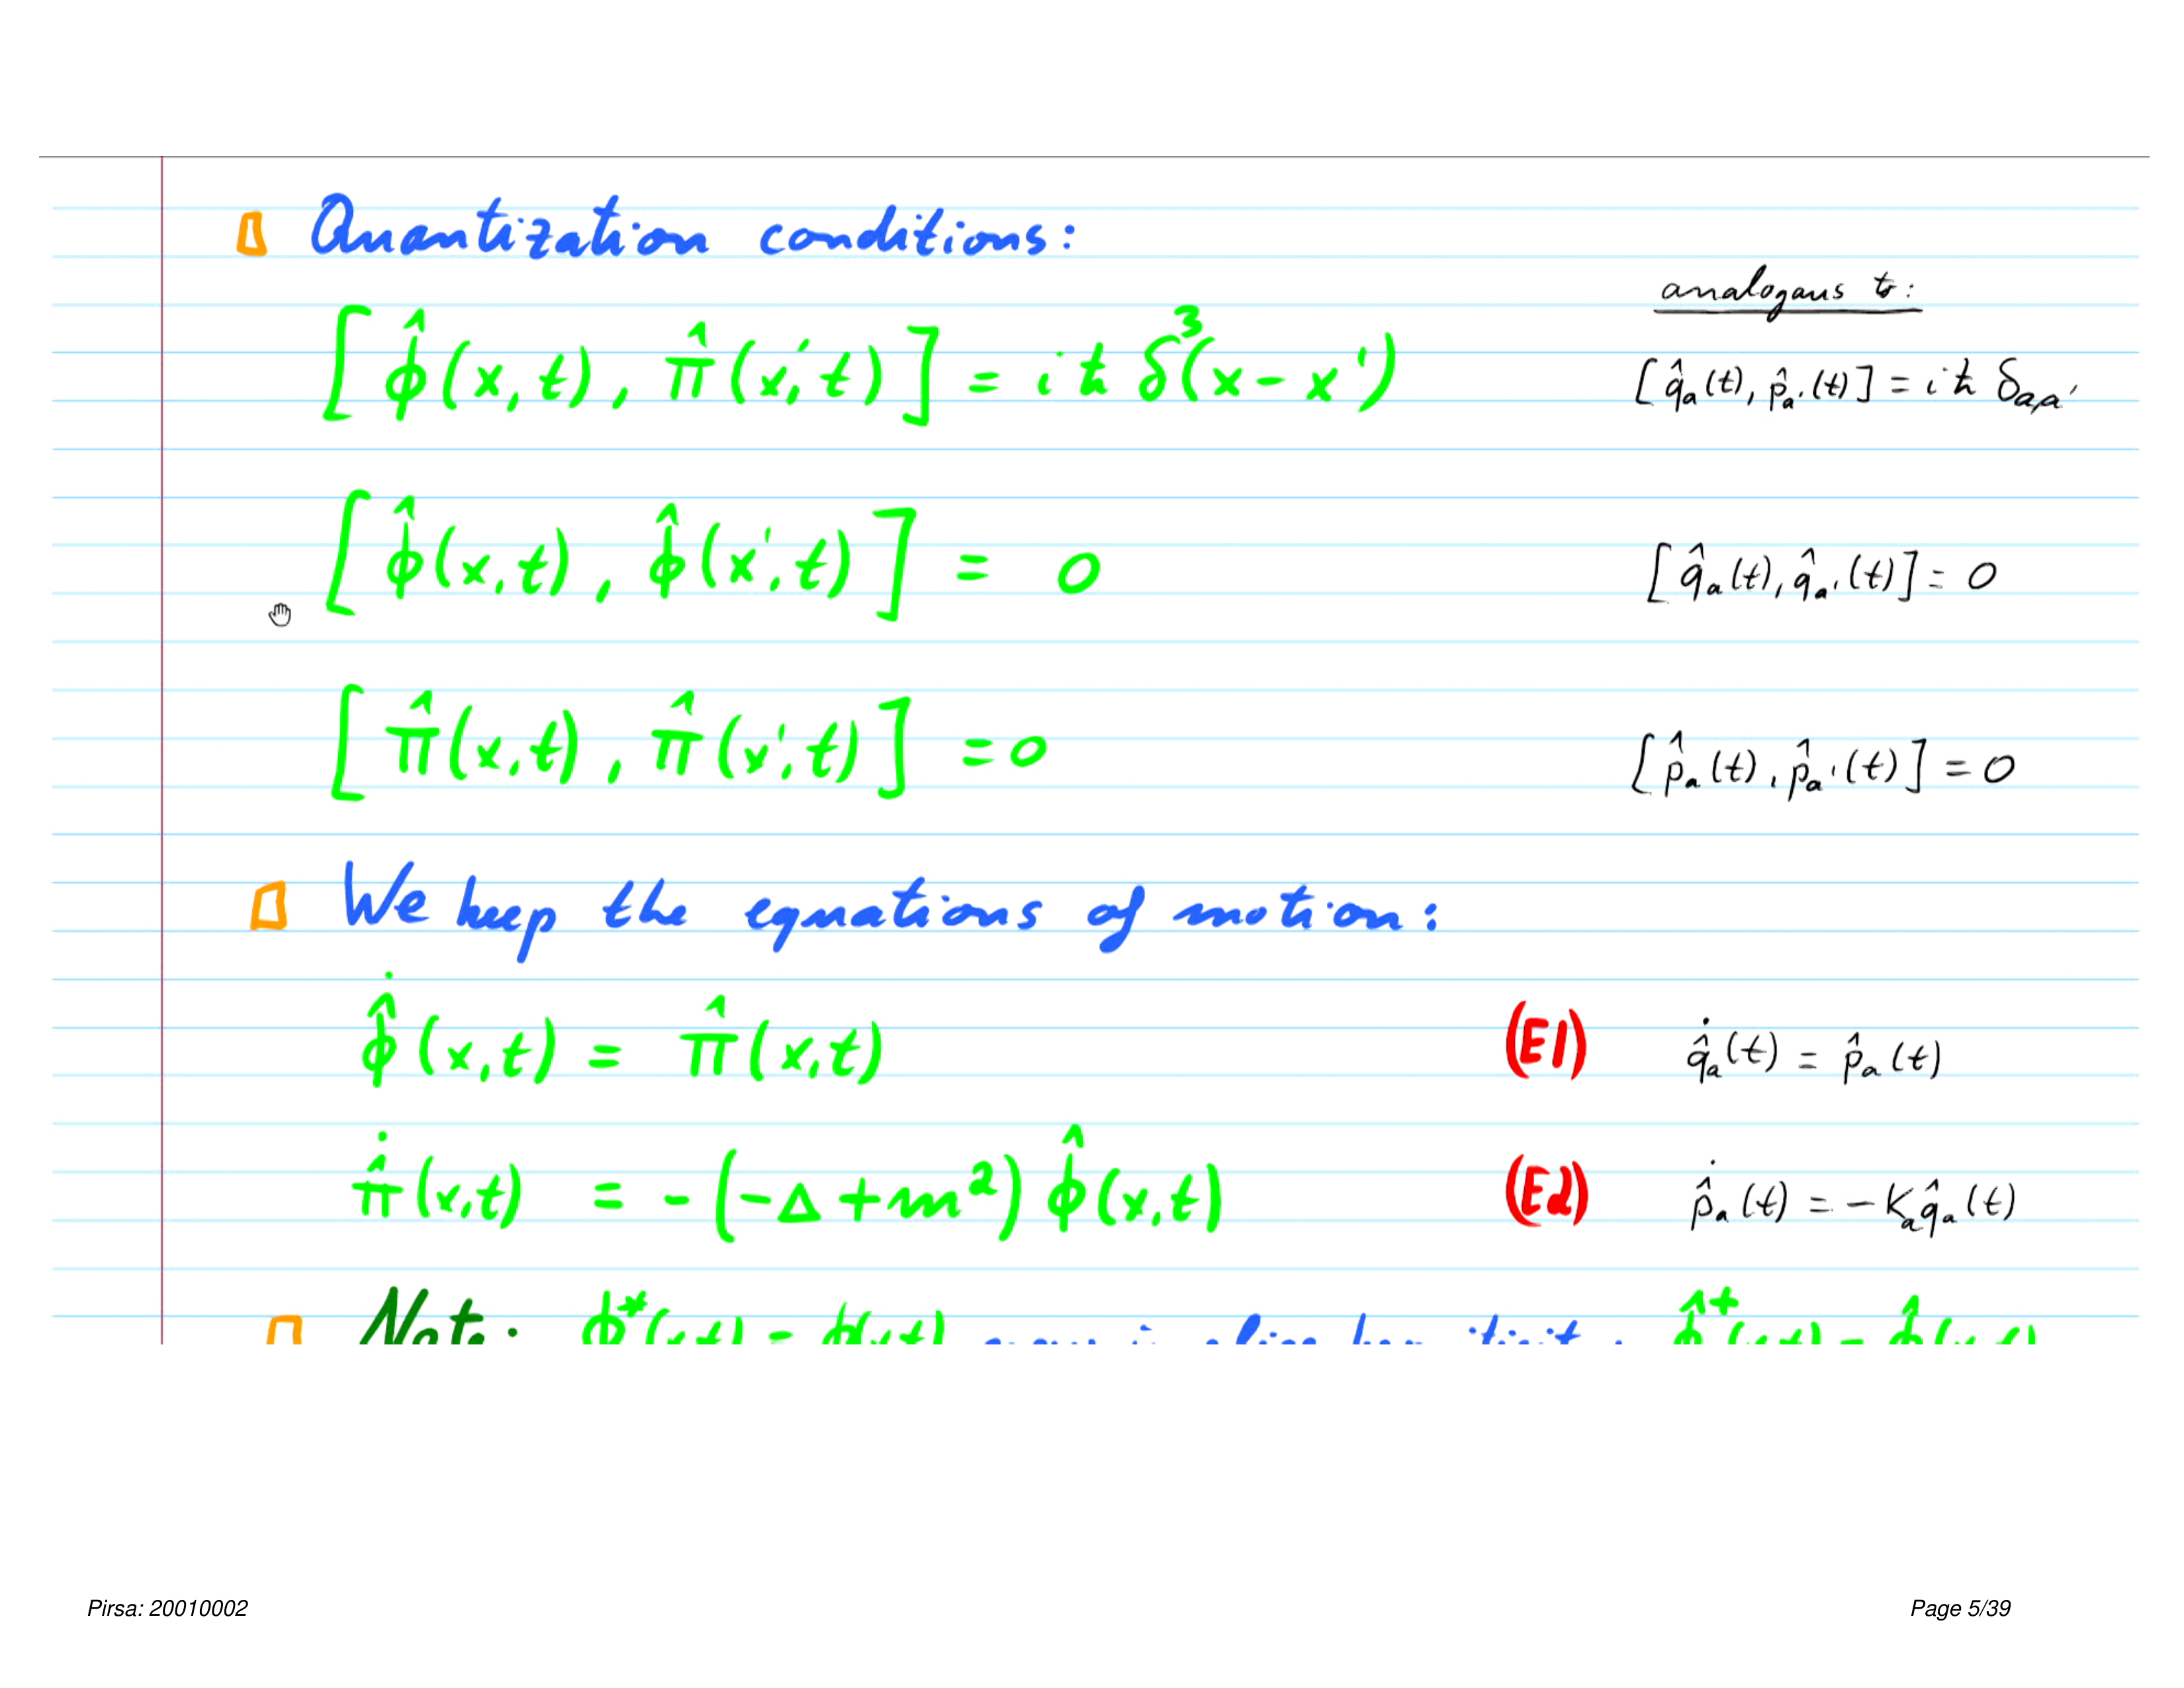 Quantization conditions:
analogous to:
[φ̂(x,t), π̂(x',t)] = iħ δ³(x-x')
[q̂ₐ(t), p̂ₐ'(t)] = iħ δₐ,ₐ'
[φ̂(x,t), φ̂(x',t)] = 0
[q̂ₐ(t), q̂ₐ'(t)] = 0
[π̂(x,t), π̂(x',t)] = 0
[p̂ₐ(t), p̂ₐ'(t)] = 0
We keep the equations of motion:
φ̂̇(x,t) = π̂(x,t) (E1) q̂̇ₐ(t) = p̂ₐ(t)
π̂̇(x,t) = -(-Δ+m²) φ̂(x,t) (E2) p̂̇ₐ(t) = -Kₐq̂ₐ(t)
Note: φ*(x,t) = φ(x,t) φ̂†(x,t) = φ̂(x,t)
Pirsa: 20010002
Page 5/39